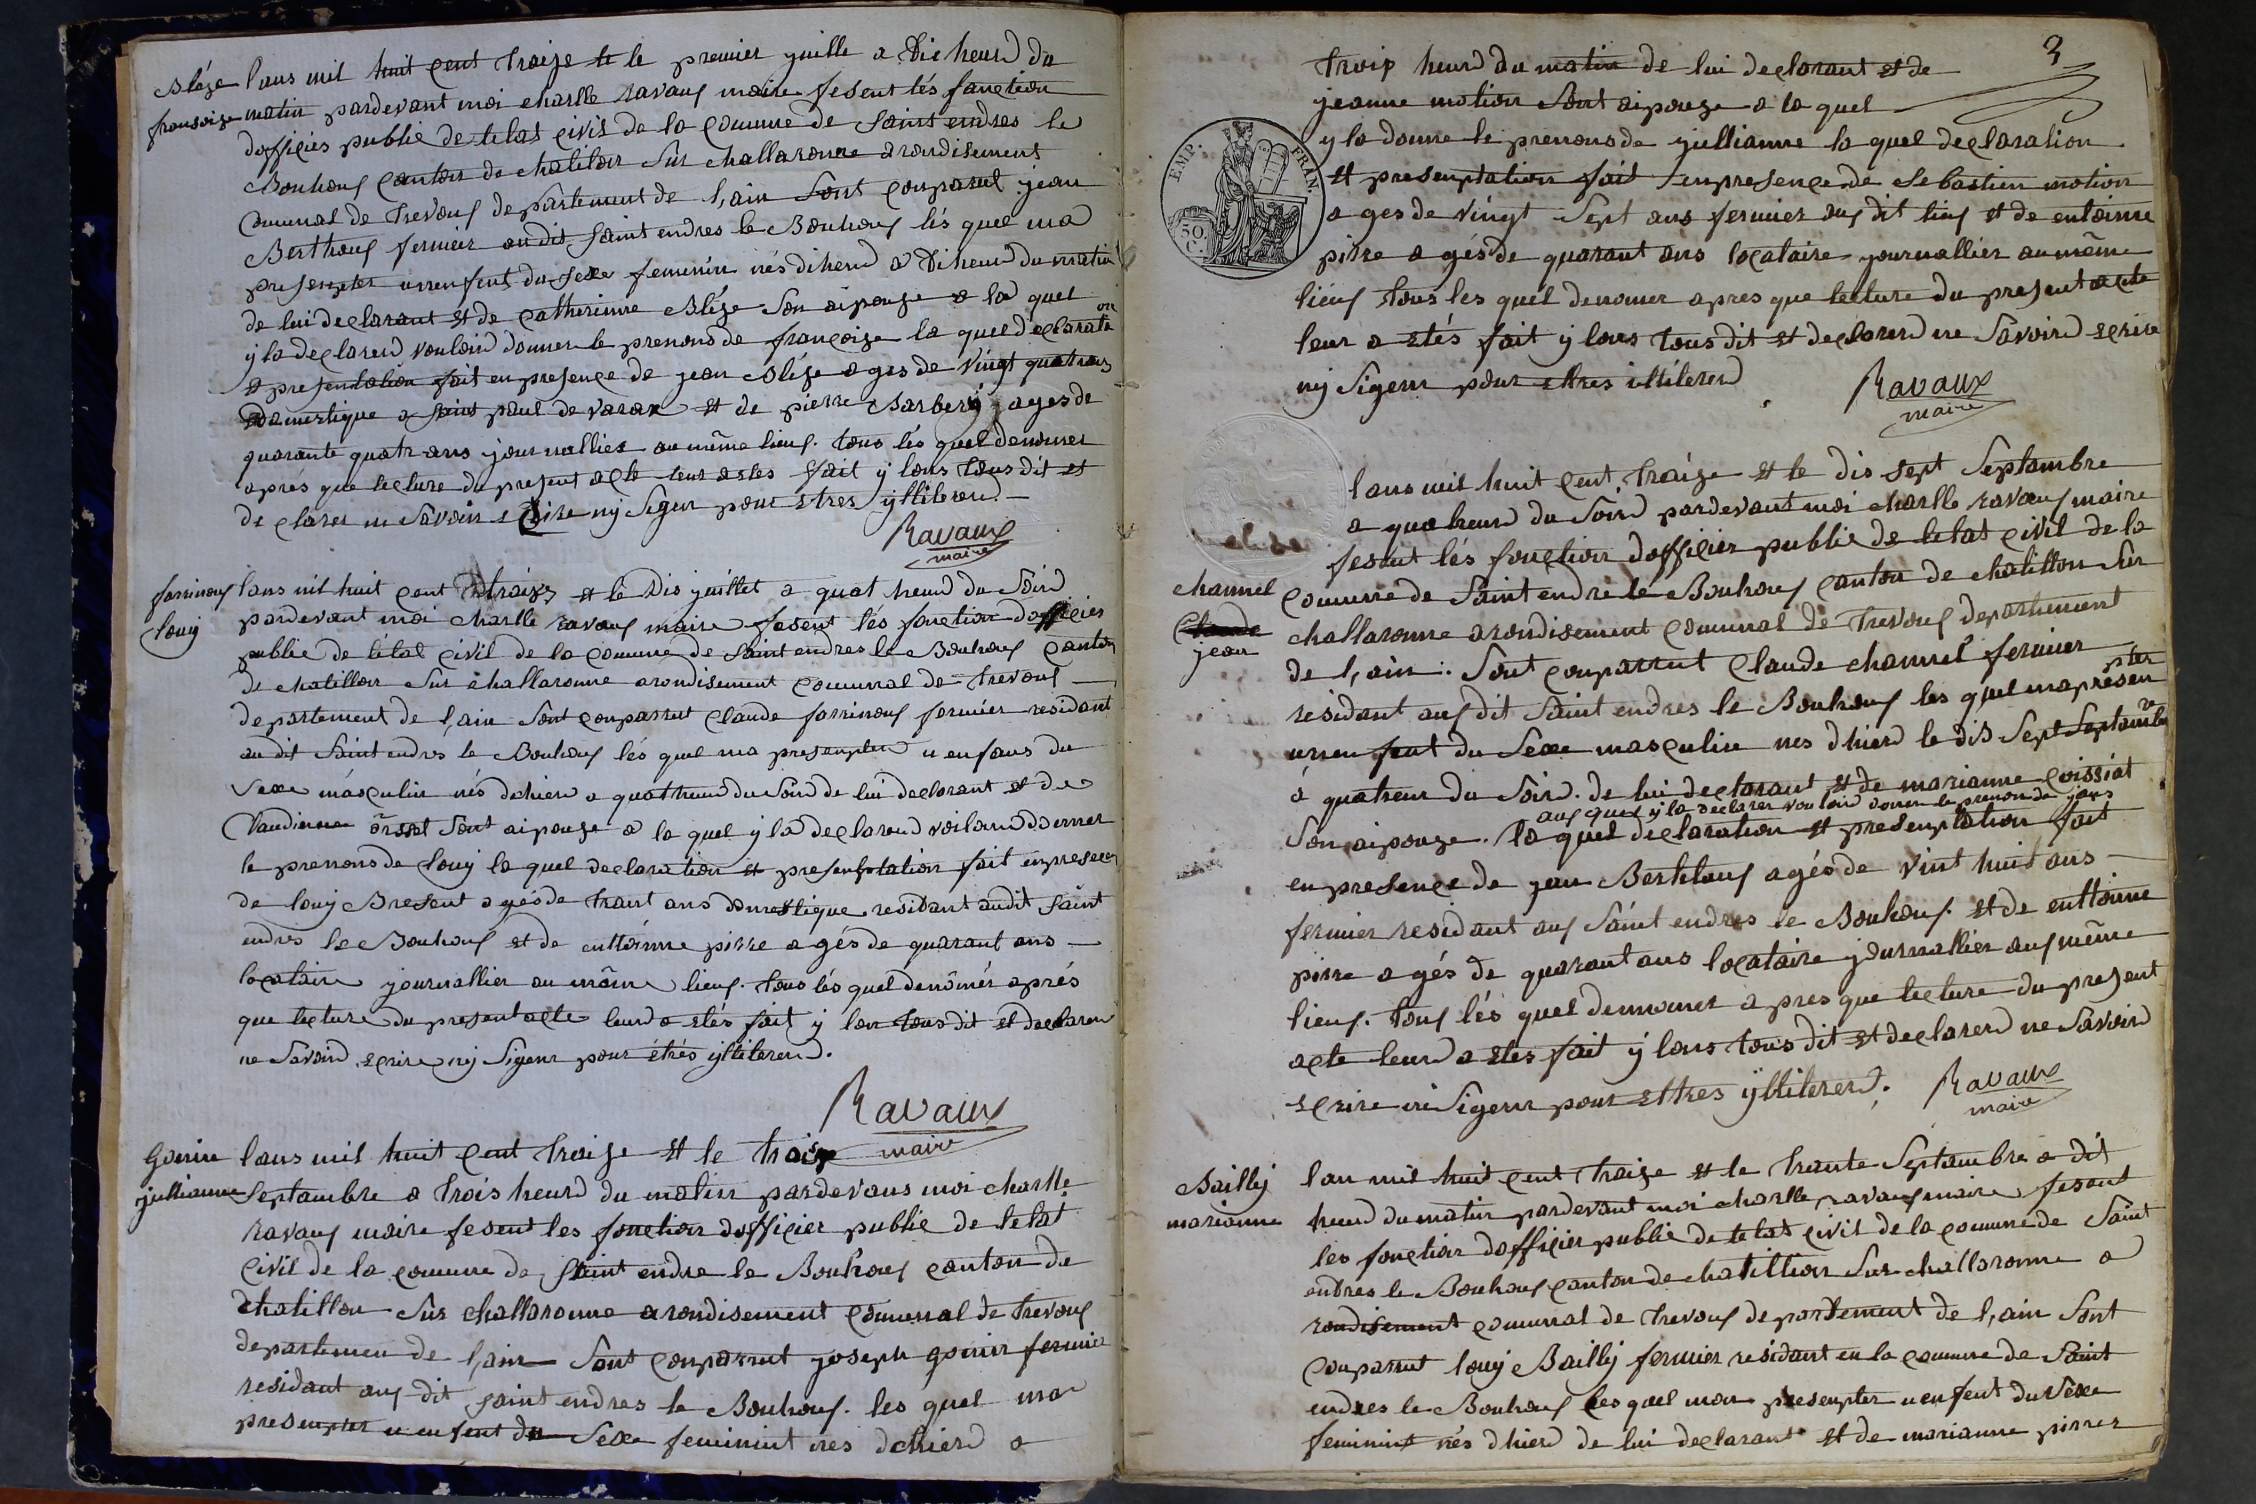 Blèze
fransoize
lans mil huit cent traize et le premier juille a Dix heurd du
matin pardevant moi charlle ravauf maire fesent lés fanction
dofficiés public de letat civil de la comune de saint endres le
Bouhouf canton de chatilon sur challaronne arondisement
comunal de trevouf departement de l,ain sont conparut jean
Berthouf fermier audit saint endres le Bouhouf lés quel ma
presenpter unenfent du sexe feminin nés dihend a Diheurd du matin
de lui declarant et de catherinne Blèze son aipouze a la quel
y la declarerd vouloird donner le prenond de françoize la quel déclaration
et presentation fait en presence de jean Blèze a gés de vingt quatrans
domestique a saint paul de varax et de pierre Barbery ages de
quarante quatr ans journallier au même lieuf. tous lés quel denomer
aprés que lecture du present acte leur a etes fait y lons tous dit et
declarer ne savoir ecrire ny siger pour etres yllileterd.
Ravaux
maire
farrinouf
louij
lans mil huit cent traize et le Dis juillet a quat heurd du soird
pardevant moi charlle ravauf maire fesent lés fonction dofficier
public de létat civil de la comune de saint endres le Bouhouf canton
de chatillon sur challaronne arondisement comunal de trevouf
departement de l,ain sont conparrut claude farrinouf fermier residant
au dit saint endres le Bouhouf lés quel ma presenpter u enfans du
sexe masculin nés dehierd a quatheurd du soird de lui declarant et de
sont aipouze a la quel y la declarerd voilaird donner
le prenons de louij la quel declaration et presenptation fait enpresence
de louij Bresent a gés de trant ans domestique residant audit saint
endres le Bouhouf et de enttoinne pirre a gés de quarant ans
locataire journallier au même lieuf. tous lés quel denomés aprés
que lecture du present acte leurd a etés fait y lon tous dit et declarer
ne savoird ecrire ny sigenr pour étrés yllileterd.
Ravaux
maire
Goirin
jullianne
lans mil huit cent traize et le trois
septambre a trois heurd du matin pardevans moi charlle
ravauf maire fesent les fonction dofficier public de letat
civil de la comune de saint endre le Bouhouf canton de
chatillon sur challaronne arondisement comunal de trevouf
departemen de l,ain sont conparrut joseph goirin fermier
residant auf dit saint endres le Bouhouf. les quel ma
presenpter u enfent du sexe feminint nes dehierd a
3
trois heurd du matin de lui declarant et de
jeanne motion sont aipouze a la quel
y la donne le prenons de jullianne la quel declaration
et presenptation fait enpresence de sebastien motion
a ges de vingt sept ans fermier auf dit lieuf et de entoinne
pirre a gés de quarant ans locataire journallier au même
liéuf tous les quel denomer apres que lecture du present acte
leur a etés fait y lons tous dit et declarerd ne savoird ecrire
ny sigenr pour ettres illileterd
Ravaux
maire
EMP. FRAN.
50 C.
channel
Claude
jean
lans mil huit cent traize et le dis sept septambre
a quatheurd du soird pardevant moi charlle ravauf maire
fesent lés fonction dofficier public de letat civil de la
comune de saint endre le Bouhouf canton de chatillon sur
challaronne arondisement comunal de trevouf departement
de l,ain. sont conparrut claude channel fermier
residant auf dit saint endres le Bouhouf les quel mapresenpter
unen fent du sexe masculin nes dhierd le dis sept septambre
à quatreur du soird. de lui declarant et de marianne coissiat
auf quel y la declarer vouloird donner le prenon de jans
son aipouze. la quel declaration et presenptation fait
en presence de jean Berthlouf agés de vint huit ans
fermier residant auf saint endres le Bouhouf. et de enttoinne
pirre a gés de quarant ans locataire journallier auf même
lieuf. tous lés quel demomer apres que lecture du present
acte leurd a etes fait y lons tous dit et declarerd ne savoird
ecrire ni sigenr pour ettres yllileterd.
Ravaux
maire
Baillij
marianne
lan mil huit cent traize et le trante septambre a dit
heurd du matin pardevant moi charlle ravauf maire fesent
les fonction dofficier public de letat civil de la comune de saint
endres le Bouhouf canton de chatillion sur challaronne a
rondisement comunal de trevouf departement de l,ain sont
conparrut louij Baillij fermier residant en la comune de saint
endres le Bouhouf les quel mon presenpter u enfent du sexe
feminint nés dhierd de lui declarant et de marianne pirrer